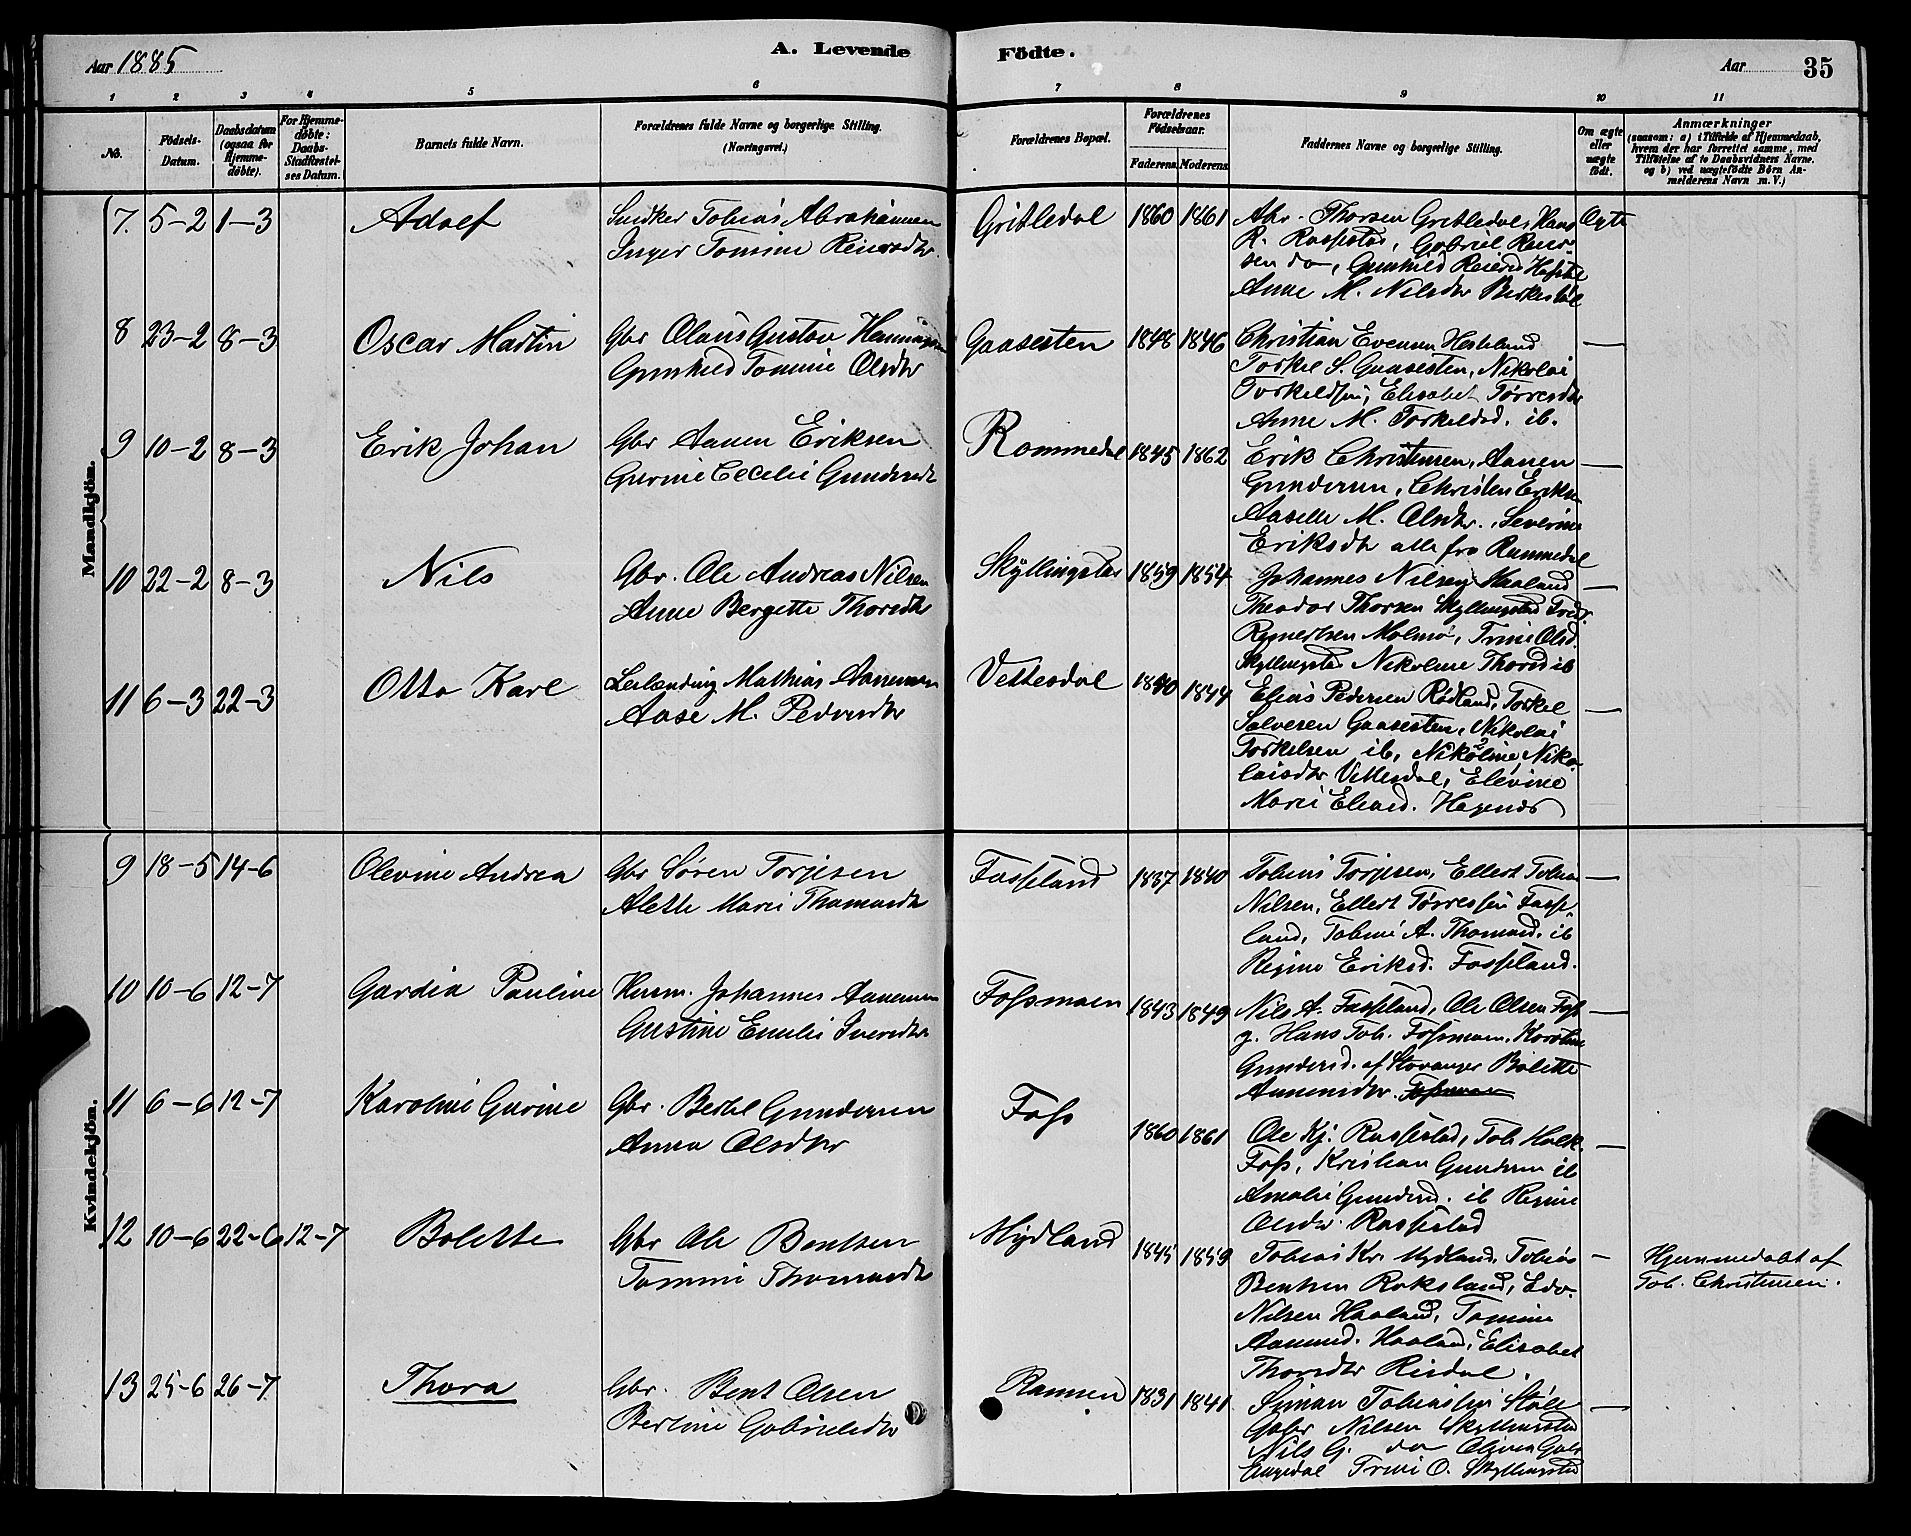 Aar 1885
A. Levende
Födte.
Aar 35
1 2 3 4 5 6 7 8 9 10 11
No.
Födsels-Datum.
Daabsdatum (ogsaa for Hjemmedøbte).
For Hjemmedøbte: Daabs-Stadfæstelses Datum.
Barnets fulde Navn.
Forældrenes fulde Navne og borgerlige Stilling. (Næringsvei.)
Forældrenes Bopæl.
Forældrenes Fødselsaar.
Faderens. Moderens.
Faddernes Navne og borgerlige Stilling.
Om ægte eller uægte født.
Anmærkninger
(saasom: a) i Tilfælde af Hjemmedaab, hvem der har forrettet samme, med Tilføielse af to Daabsvidners Navne. og b) ved uægtefødte Børn Anmelderens Navn m. V.)
Mandkjön.
7. 5-2 1-3 Adolf
Snidker Tobias Abrahamsen
Inger Tomine Reiersdtr
Gribledal 1860 1861
Abr. Thorsen Gribledal, Hans
R. Rossestad, Gabriel Reier-
sen do, Gunhild Reiersd
Anne M. Nilsdtr
Ægte
8 23-2 8-3 Oscar Martin
Gbr Olaus Gustav
Gunhild Tomine Olsdtr
Gaasesten 1848 1846
Christian Evensen Hesteland
Torkel S. Gaasesten, Nikolai
Torkeldsen, Elisabet Tørresdtr
Anne M. Torkeldsd. ib.
9 10-2 8-3 Erik Johan
Gbr Aanen Eriksen
Gurine Cecelie Gundersdtr
Rommedal 1845 1862
Erik Christensen, Aanen
Gundersen, Christen Eriksen
M. Olsdtr., Severine
Eriksdtr alle fra Rommedal
10 22-2 8-3 Nils
Gbr. Ole Andreas Nilsen
Anne Bergette Thorsdtr
Skyllingstad 1859 1854
Johannes Nilsen Haaland
Theodor Thorsen Skyllingstad
Molmo, Trine Olsd.
Skyllingstad Nikoline Thorsd ib
11 6-3 22-3 Otto Karl
Leilænding Mathias Aanensen
Aase M. Pedersdtr
Vettesdal 1840 1844
Elias Pedersen Rødland, Torkel
Salvesen Gaasesten, Nikolai
Torkelsen ib, Nikoline Niko-
laisdtr Vettesdal, Elevine
Marie Eliasd.
Kvindekjön.
9 18-5 14-6 Olevine Andrea
Gbr Søren Torjesen
Alette Marie Thomasdtr
Fosseland 1837 1840
Tobias Torjesen, Ellert Tobias
Nilsen, Ellert Tørressen Fosse-
land, Toline A. Thomasd. ib
Regine Eriksd. Fosseland.
10 10-6 12-7 Gardia Pauline
Husm. Johannes Aanensen
Gustine Emilie Iversdtr
Fossmoen 1843 1849
Nils A. Fosseland, Ole Olsen Foss
g. Hans Tob. Fossmoen, Karoline
Gundersd. af Stavanger Bolette
Aanensdtr. Fossmoen
11 6-6 12-7 Karoline Gurine
Gbr. Bertel Gundersen
Anna Olsdtr
Foss
1860 1861
Ole Kj. Rossestad, Tob.
Foss, Kristian Gundersen ib
Amalie Gundersd. ib Regine
Olsdtr. Rossestad
12 10-6 22-6 12-7 Bolette
Gbr Ole Bentsen
Tomine Thomasdtr
Mydland
1845 1859
Tobias Kr. Mydland, Tobias
Bentsen Roksland, Edv.
Nilsen Haaland, Tomine
Aanensd. Haaland, Elisabet
Thorsdtr Risdal.
Hjemmedøbt af
Tob. Christensen.
13 25-6 26-7 Thora
Gbr. Bent Olsen
Bertine Gabrielsdtr
Ramsen 1831 1841
Siman Tobiassen Støle
Gabr Nilsen Skyllingstad
Nils G. do
Trine O. Skyllingstad